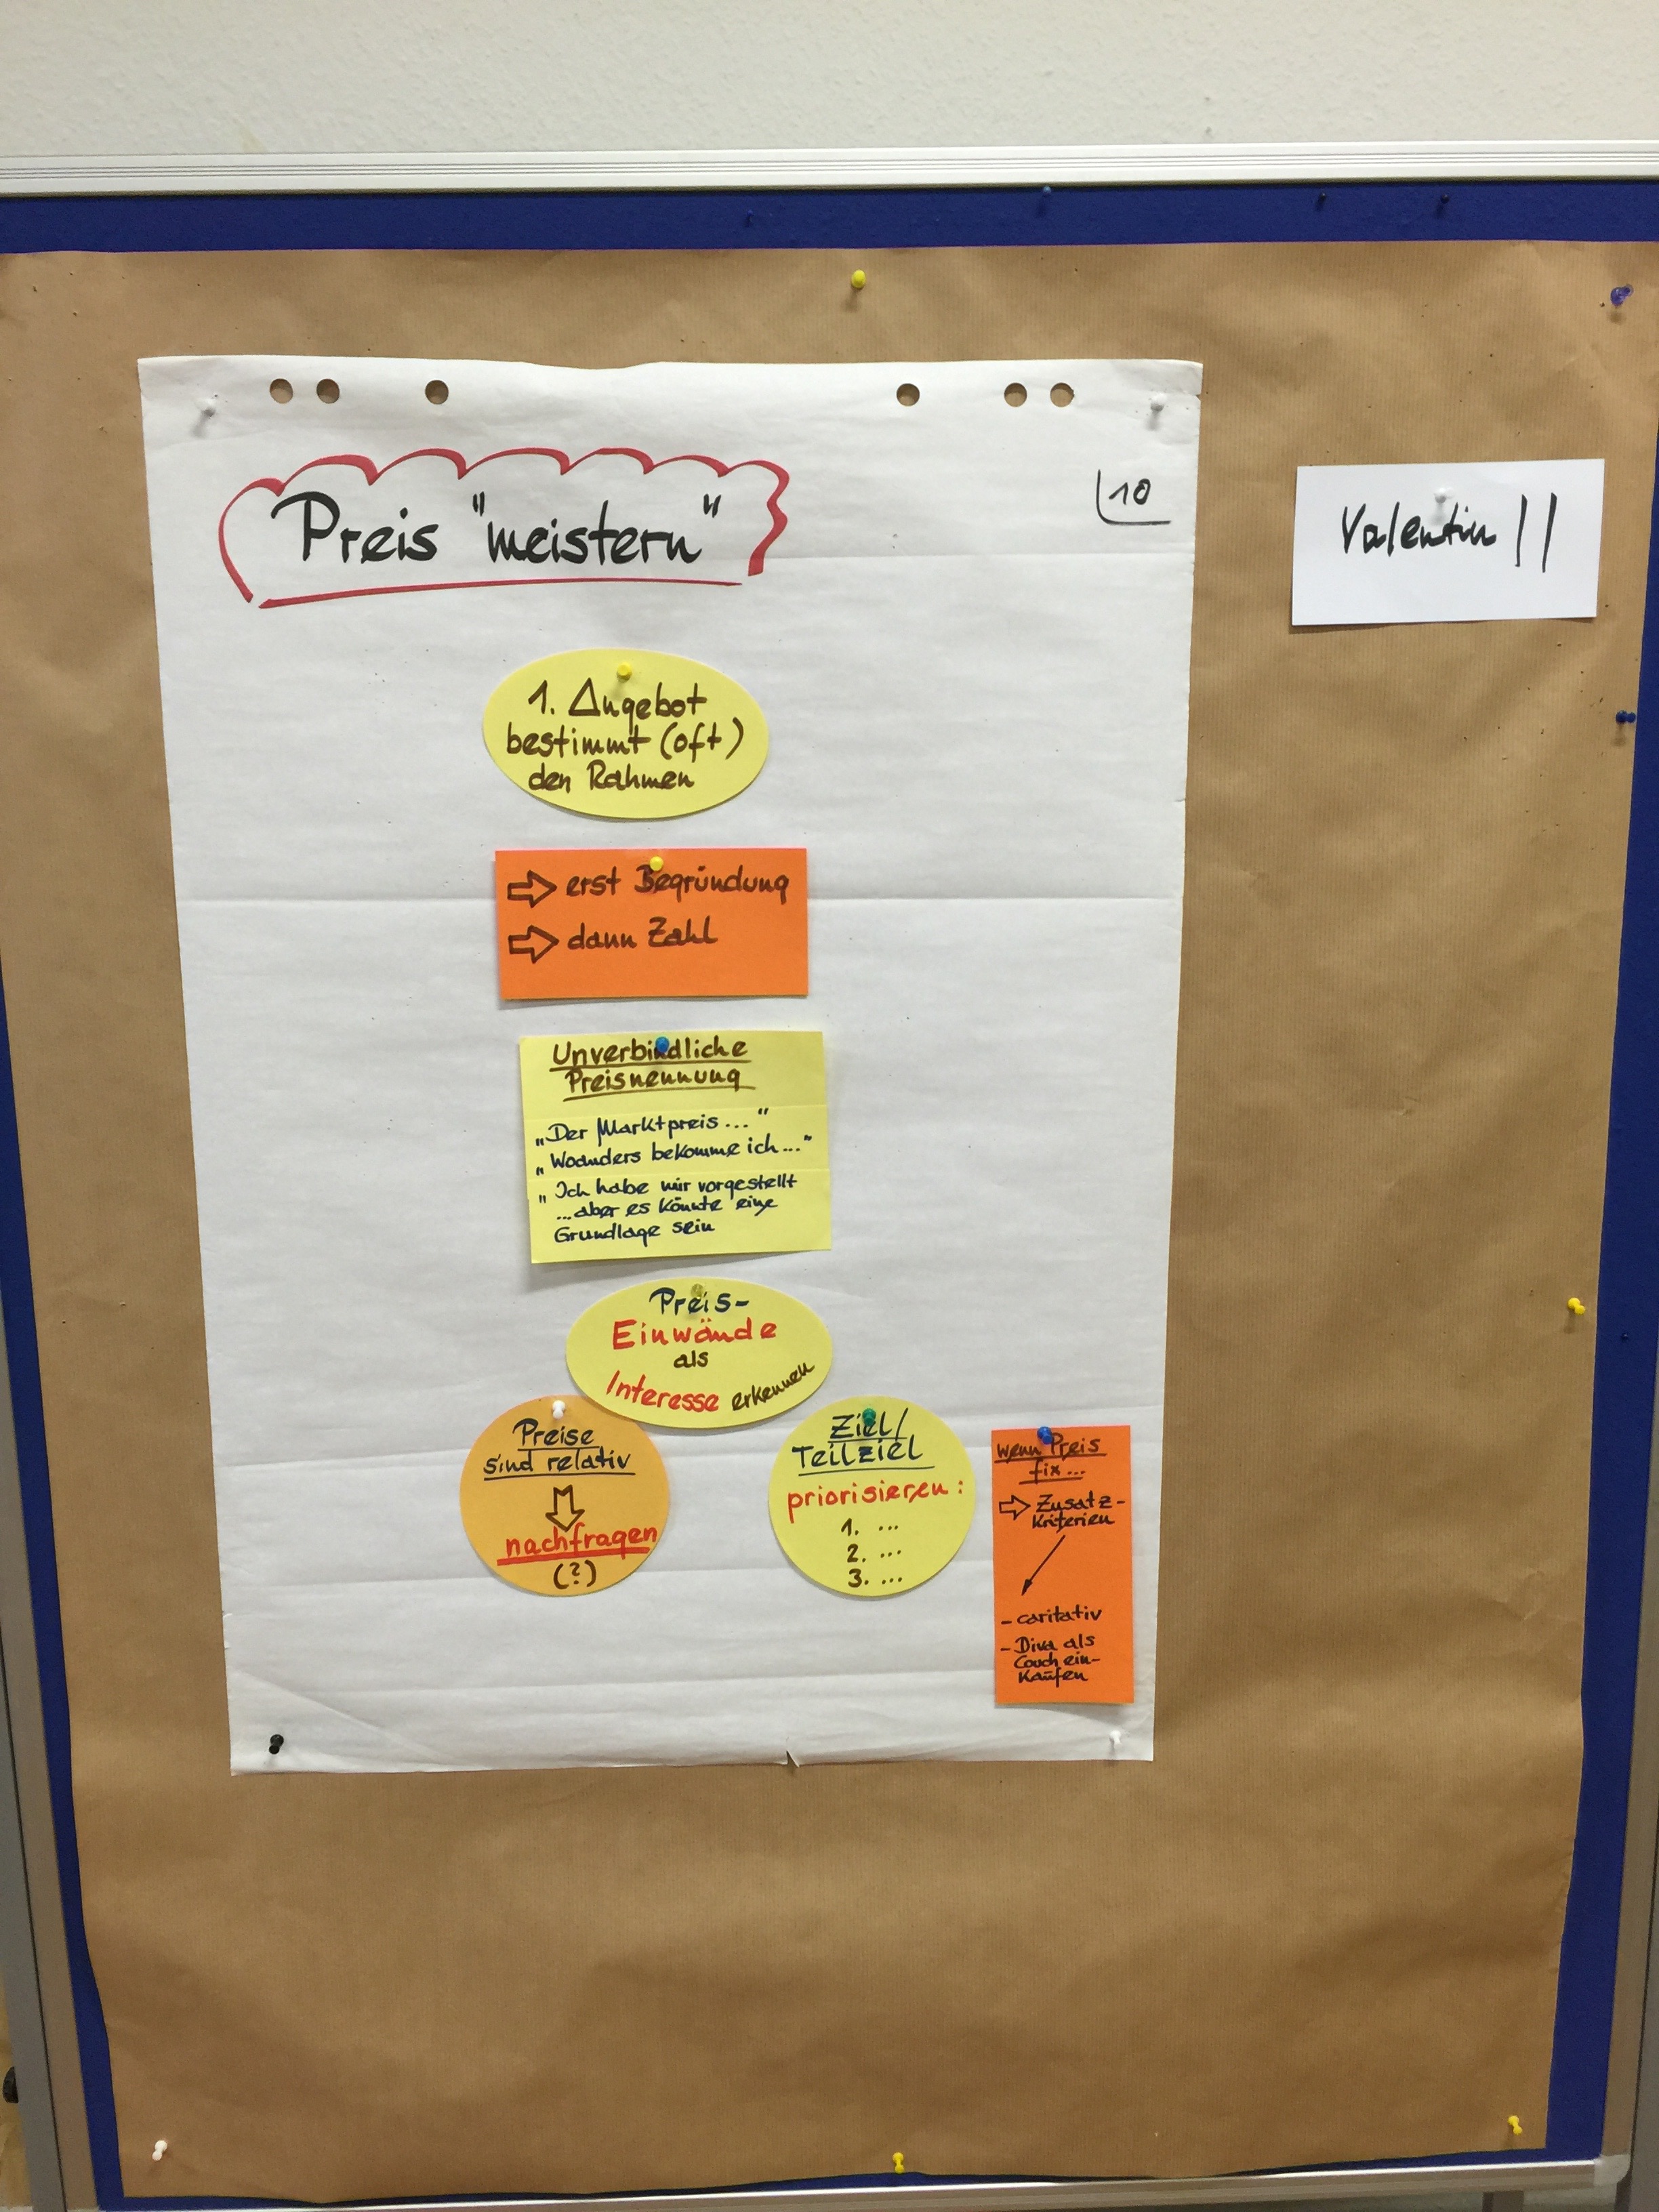 Preis "meistern"
10
Valentin ||
1. Angebot
bestimmt (oft)
den Rahmen
⇨ erst Begründung
⇨ dann Zahl
Unverbindliche
Preisnennung
„Der Marktpreis..."
„Woanders bekomme ich..."
„Ich habe mir vorgestellt
...aber es könnte eine
Grundlage sein
Preis-
Einwände
als
Interesse erkennen
Preise
sind relativ
nachfragen
(?)
Ziel/
Teilziel
priorisieren:
1. ...
2. ...
3. ...
wenn Preis
fix...
⇨ Zusatz-
Kriterien
- caritativ
- Diva als
Couch ein-
kaufen